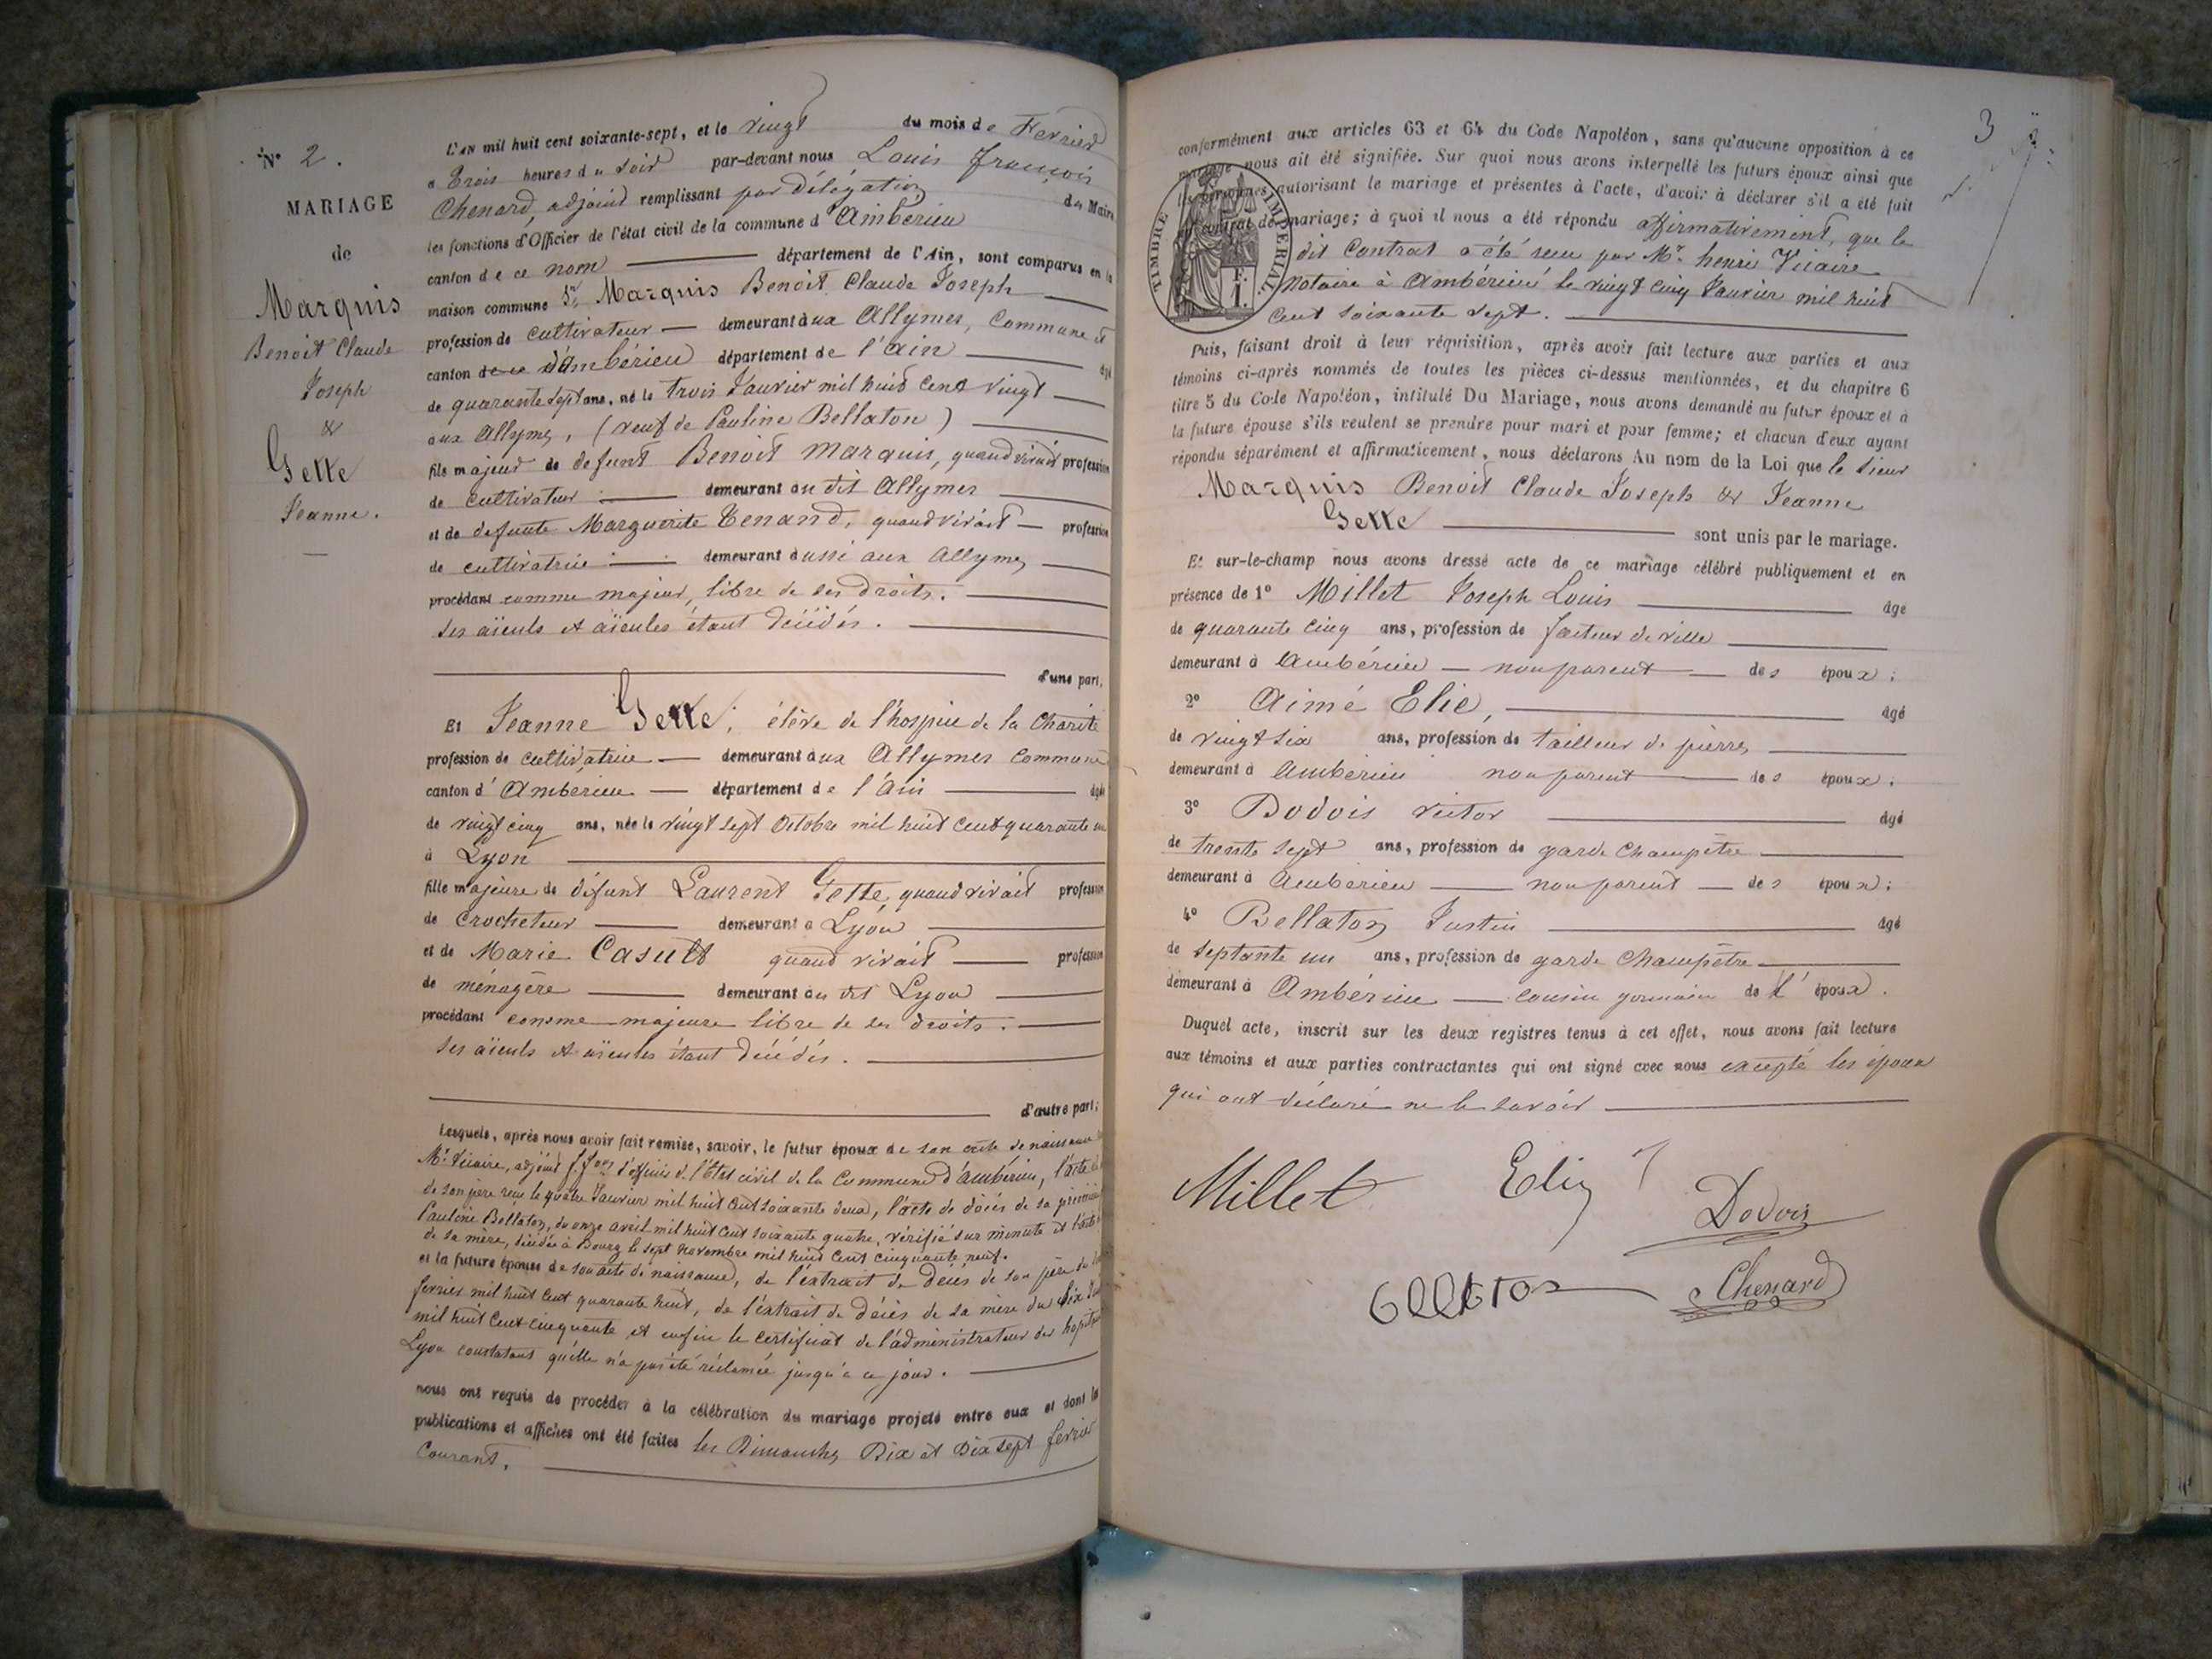 N° 2.
MARIAGE
de
Marquis
Benoit Claude
Joseph
&
Gette
Jeanne.
L'AN mil huit cent soixante-sept, et le vingt du mois de Fevrier
a Trois heures du soir par-devant nous Louis françois
Chenard, adjoint remplissant par délégation du Maire
les fonctions d'Officier de l'état civil de la commune d'Ambérieu
canton de ce nom département de l'Ain, sont comparus en la
maison commune Sr. Marquis Benoit Claude Joseph
profession de cultivateur demeurant aux Allymes, Commune et
canton de ce d'Ambérieu département de l'Ain âgé
de quarante sept ans, né le trois Janvier mil huit cent vingt
aux Allymes, (veuf de Pauline Bellaton)
fils majeur de defunt Benoit Marquis, quand vivait profession
de cultivateur demeurant au dit Allymes
et de defunte Marguerite Tenand, quand vivait profession
de cultivatrice demeurant aussi aux Allymes
procédant comme majeur, libre de ses droits.
ses aïeuls et aïeules étant décédés.
d'une part,
Et Jeanne Gette, élève de l'hospice de la Charité
profession de cultivatrice demeurant aux Allymes Commune
canton d'Ambérieu département de l'Ain âgée
de vingt cinq ans, née le vingt sept Octobre mil huit cent quarante un
à Lyon
fille majeure de défunt Laurent Gette, quand vivait profession
de Crocheteur demeurant a Lyon
et de Marie Casult quand vivait profession
de ménagère demeurant au dit Lyon
procédant comme majeure libre de ses droits.
ses aïeuls et aïeules étant décédés.
d'autre part;
Lesquels, après nous avoir fait remise, savoir, le futur époux de son acte de naissance
Mr. Vicaire, adjoint f. fons d'officier de l'Etat civil de la Commune d'Ambérieu, l'acte de
de son père reçu le quatre Janvier mil huit cent soixante deux, l'acte de décès de sa première
Pauline Bellaton, du onze avril mil huit cent soixante quatre, vérifié sur minute et l'acte
de sa mère, décédée à Bourg le sept novembre mil huit cent cinquante neuf.
et la future épouse de son acte de naissance, de l'extrait de décès de son père du
fevrier mil huit cent quarante huit, de l'extrait de décès de sa mère du dix
mil huit cent cinquante et enfin le certificat de l'administrateur des hopitaux
Lyon constatant qu'elle n'a pas été réclamée jusqu'à ce jour.
nous ont requis de procéder à la célébration du mariage projeté entre eux et dont les
publications et affiches ont été faites les Dimanches Dix et Dix sept fevrier
Courant.
3
conformément aux articles 63 et 64 du Code Napoléon, sans qu'aucune opposition à ce
mariage nous ait été signifiée. Sur quoi nous avons interpellé les futurs époux ainsi que
les personnes autorisant le mariage et présentes à l'acte, d'avoir à déclarer s'il a été fait
un contrat de mariage; à quoi il nous a été répondu affirmativement, que le
dit Contrat a été reçu par Mr. henri Vicaire
Notaire à Ambérieu le vingt cinq Janvier mil huit
cent soixante sept.
TIMBRE IMPERIAL
F.
1.
Puis, faisant droit à leur réquisition, après avoir fait lecture aux parties et aux
témoins ci-après nommés de toutes les pièces ci-dessus mentionnées, et du chapitre 6
titre 5 du Code Napoléon, intitulé Du Mariage, nous avons demandé au futur époux et à
la future épouse s'ils veulent se prendre pour mari et pour femme; et chacun d'eux ayant
répondu séparément et affirmativement, nous déclarons Au nom de la Loi que le sieur
Marquis Benoit Claude Joseph & Jeanne
Gette sont unis par le mariage.
Et sur-le-champ nous avons dressé acte de ce mariage célébré publiquement et en
présence de 1° Millet Joseph Louis âgé
de quarante cinq ans, profession de facteur de ville
demeurant à Ambérieu non parent des époux;
2° Aimé Elie, âgé
de vingt six ans, profession de tailleur de pierres
demeurant à Ambérieu non parent des époux;
3° Dodois victor âgé
de trente sept ans, profession de garde Champêtre
demeurant à Amberieu non parent des époux;
4° Bellaton Justin âgé
de septante un ans, profession de garde Champêtre
demeurant à Ambérieu cousin germain de l'époux.
Duquel acte, inscrit sur les deux registres tenus à cet effet, nous avons fait lecture
aux témoins et aux parties contractantes qui ont signé avec nous excepté les époux
qui ont déclaré ne le savoir
Millet Elie
Dodois
Chenard